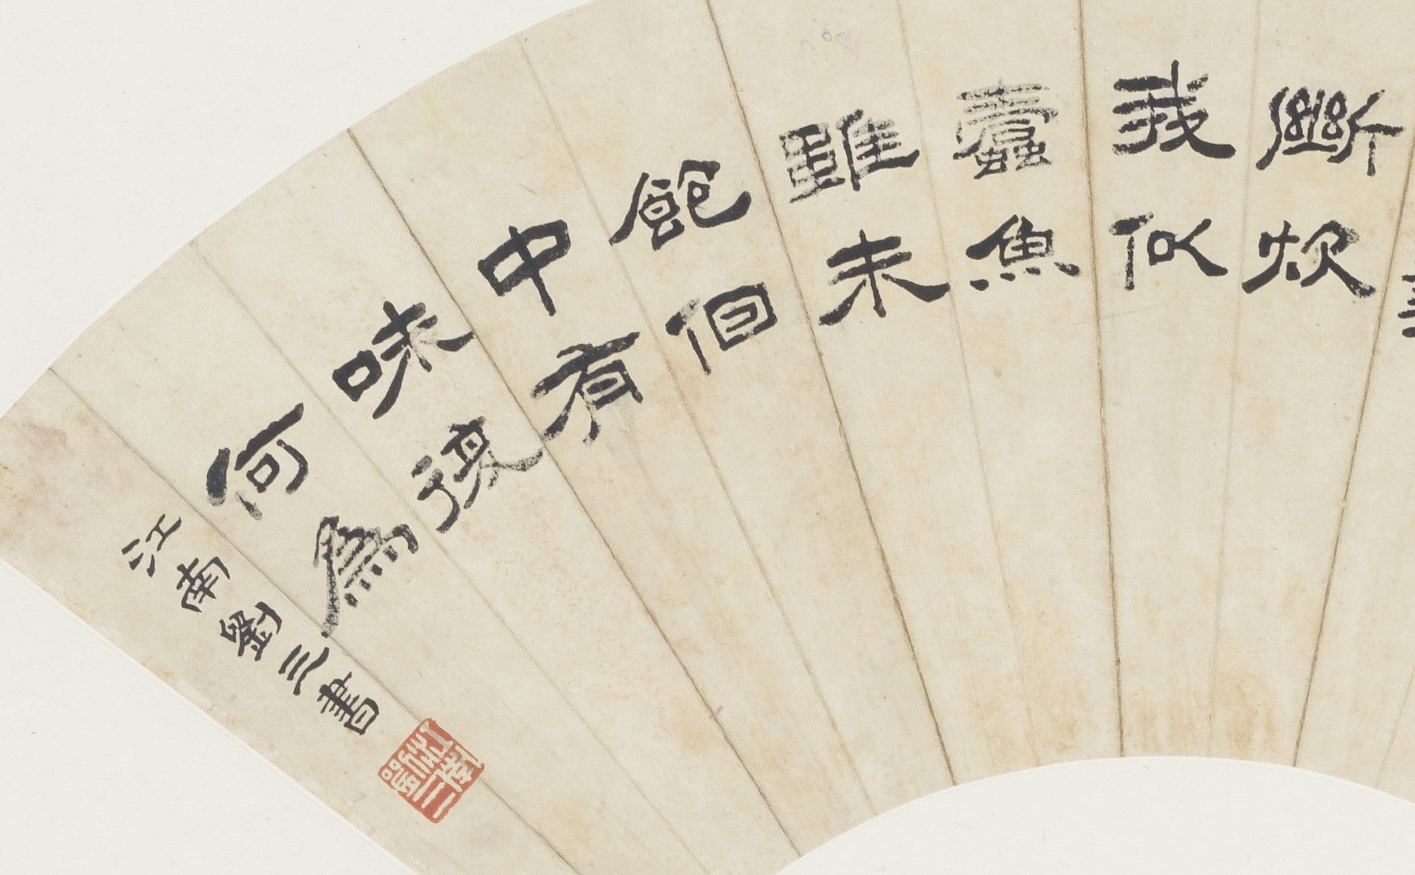 斷炊
我似
蠹魚
雖未
飽但
中有
味復
何為
江南劉三書